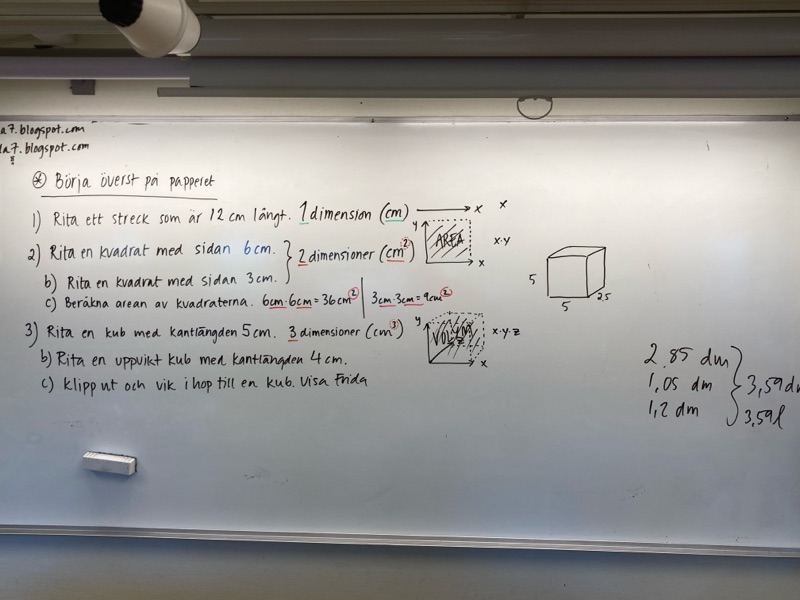 a7.blogspot.com
la7.blogspot.com
* Börja överst på papperet
1) Rita ett streck som är 12 cm långt. 1 dimension (cm) x x
2) Rita en kvadrat med sidan 6 cm. } 2 dimensioner (cm²) y AREA x x·y
b) Rita en kvadrat med sidan 3 cm.
c) Beräkna arean av kvadraterna. 6cm·6cm = 36cm² | 3cm·3cm = 9cm²
3) Rita en kub med kantlängden 5 cm. 3 dimensioner (cm³) y VOLYM z x x·y·z
b) Rita en uppvikt kub med kantlängden 4 cm.
c) Klipp ut och vik ihop till en kub. Visa Frida
5
5
2,5
2,85 dm
1,05 dm } 3,59 dm
1,2 dm 3,59 l